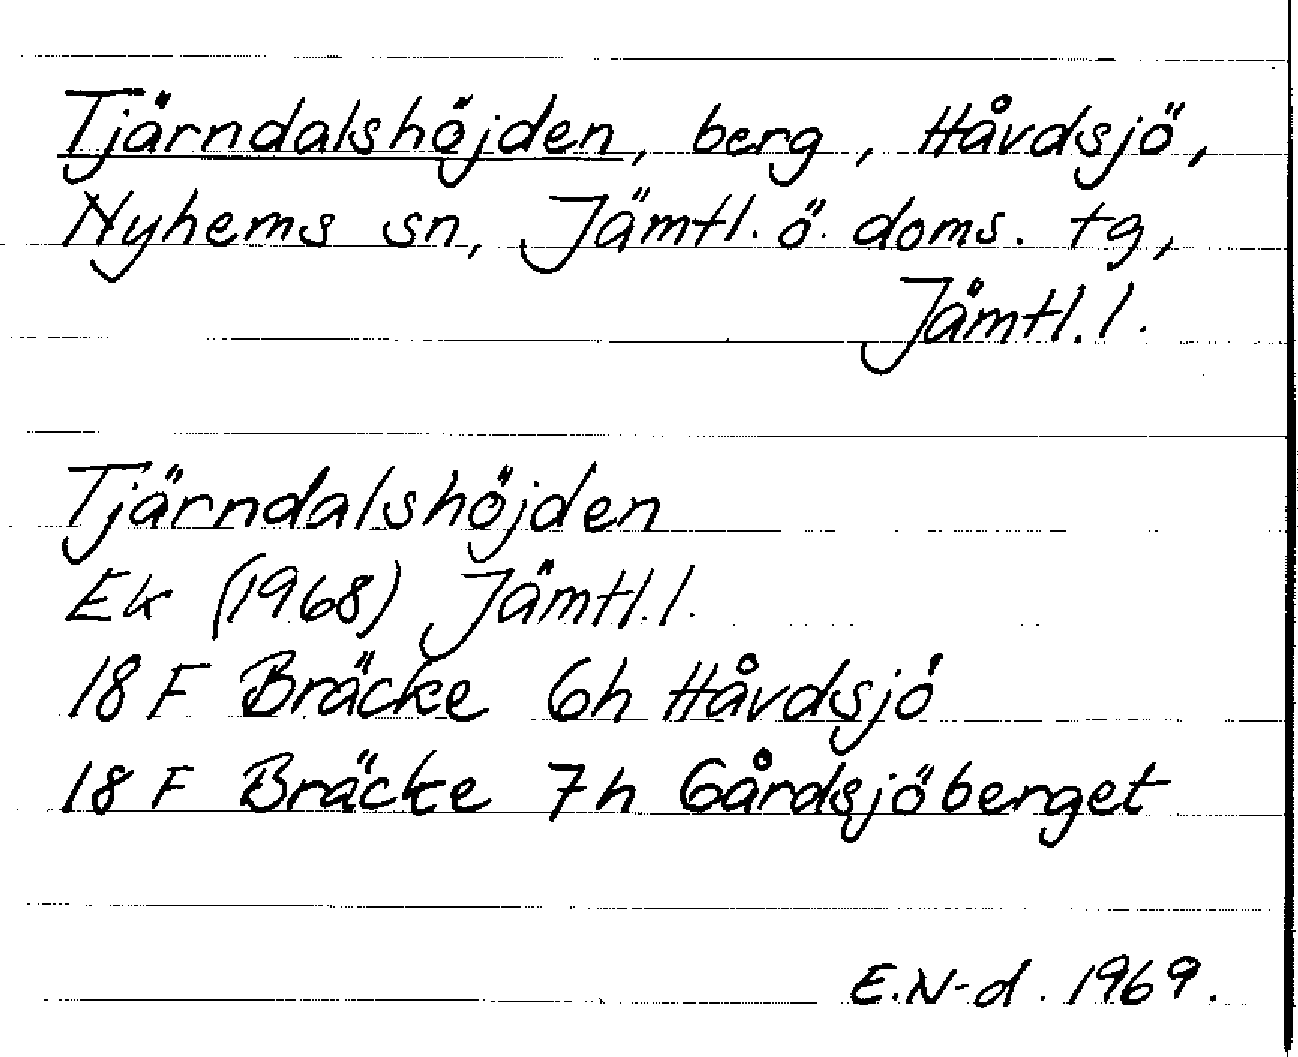 Tjärndalshöjden, berg, Håvdsjö,
Nyhems sn, Jämtl. ö. doms. tg,
Jämtl. l.
Tjärndalshöjden
Ek (1968) Jämtl. l.
18 F Bräcke 6h Håvdsjö
18 F Bräcke 7h Gårdsjöberget
E.N-d. 1969.